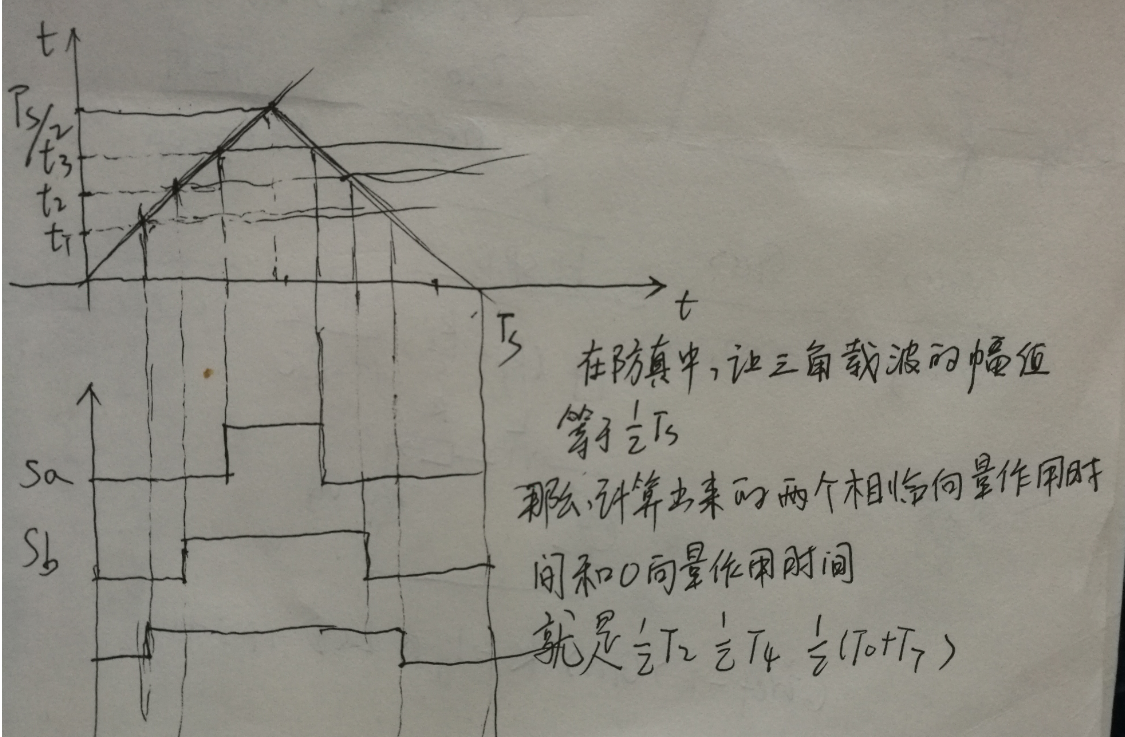 t
Ts/2
t3
t2
t1
t
Ts
在防真中，让三角载波的幅值
等于½Ts
Sa
那么，计算出来的两个相临向量作用时
Sb
间和0向量作用时间
就是½T2 ½T4 ½(T0+T7)